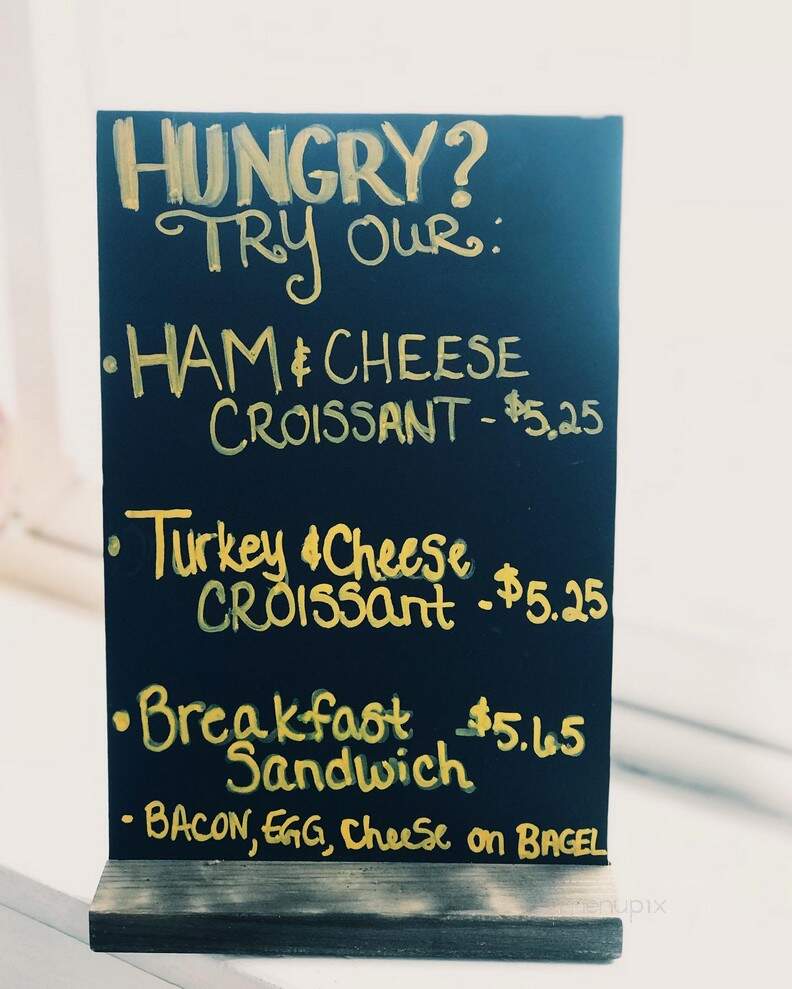 HUNGRY?
TRY OUR:
• HAM & CHEESE
CROISSANT - $5.25
• Turkey & Cheese
CROISSant - $5.25
• Breakfast $5.65
Sandwich
- BACON, EGG, Cheese on BAGEL
menupix